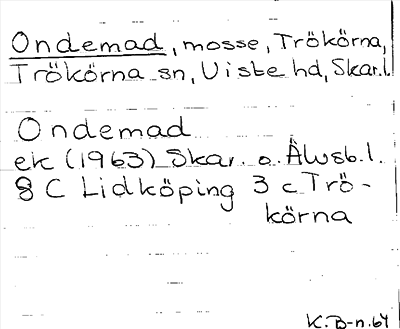 Ondemad, mosse, Trökörna,
Trökörna sn, Viste hd, Skar.l.
Ondemad
ek (1963) Skar. o. Älvsb.l.
8 C Lidköping 3 c Trö-
körna
K.B-n.64